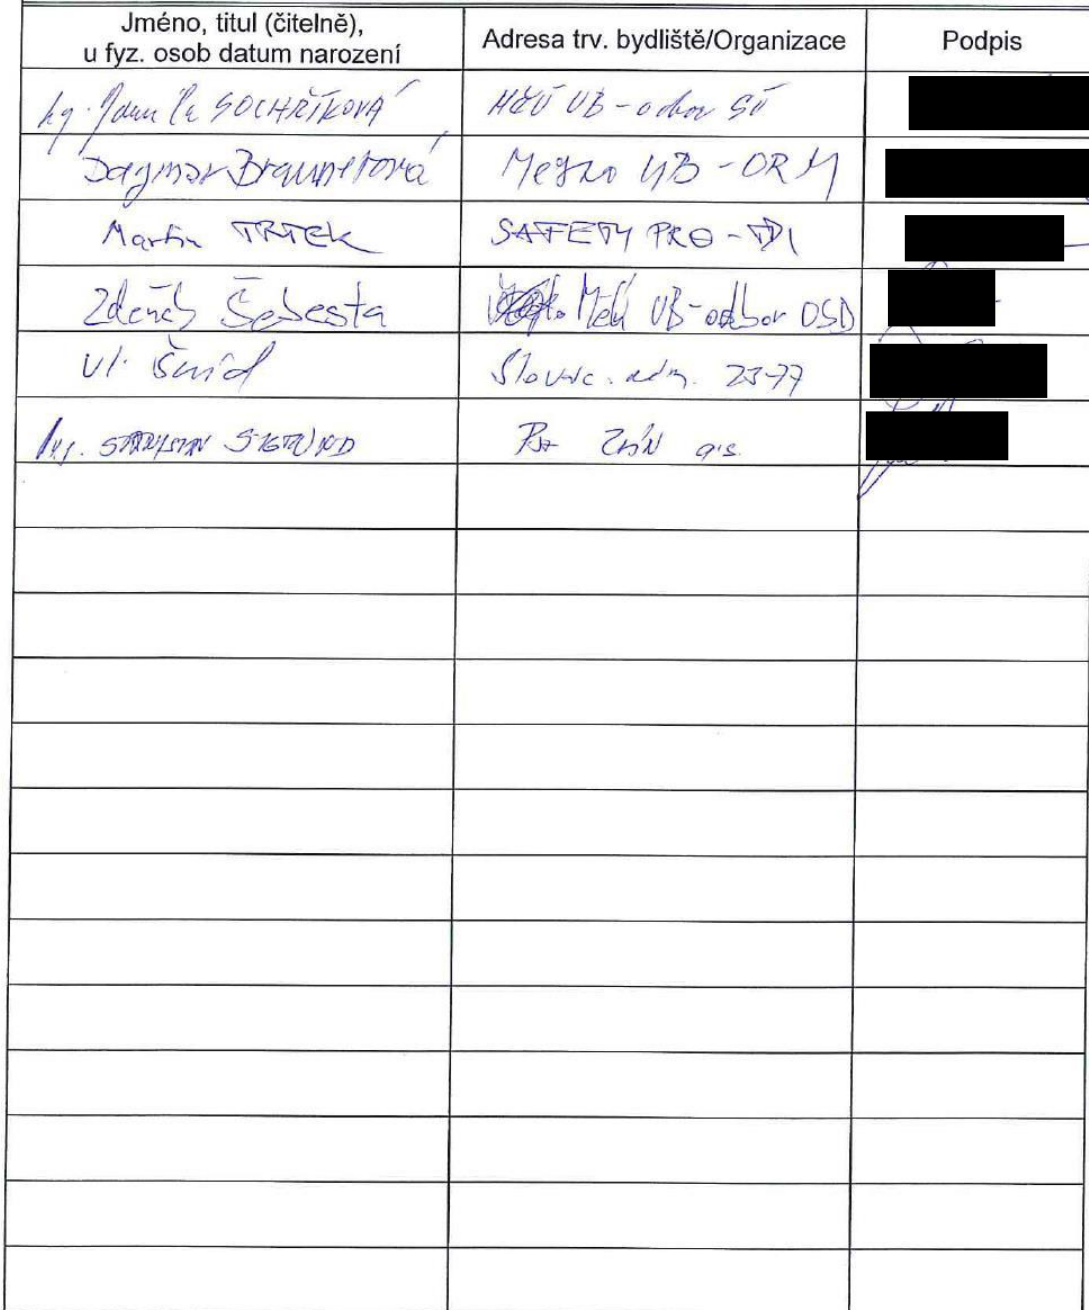 Jméno, titul (čitelně),
u fyz. osob datum narození
Adresa trv. bydliště/Organizace
Podpis
Ing. Jamila SOCHŘÍKOVÁ MěÚ UB - odbor SÚ
Dagmar UB - ORM
Martin TRTEK SAFETY PRO - TDI
Zdeněk Šebesta MěÚ UB - odbor OSD
Vl. Šmíd Slovác. 23-77
Ing. STANISLAV ZLÍN a.s.